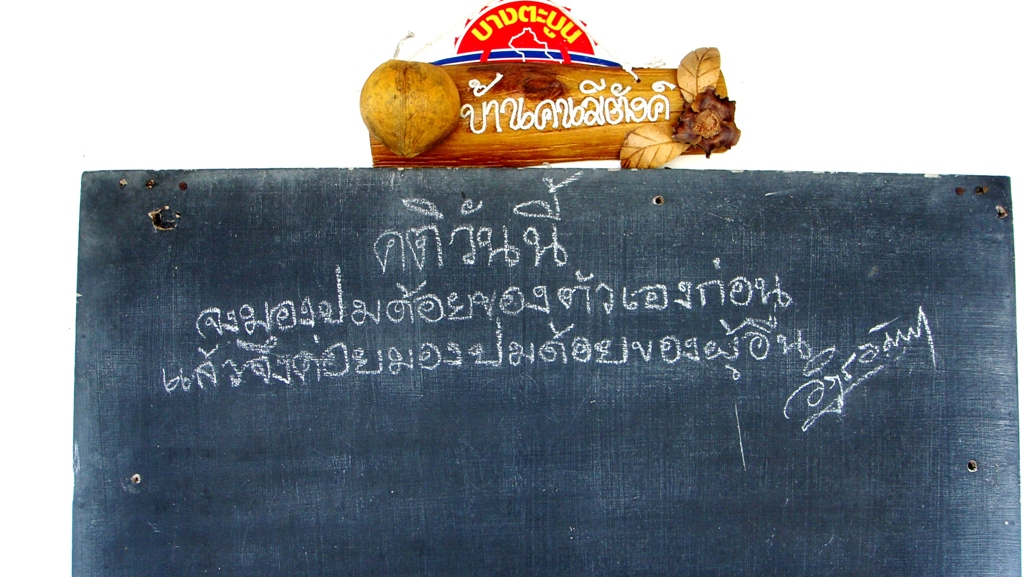 บางตะบูน
บ้านคนมีตังค์
คติวันนี้
จงมองปมด้อยของตัวเองก่อน
แล้วจึงค่อยมองปมด้อยของผู้อื่น